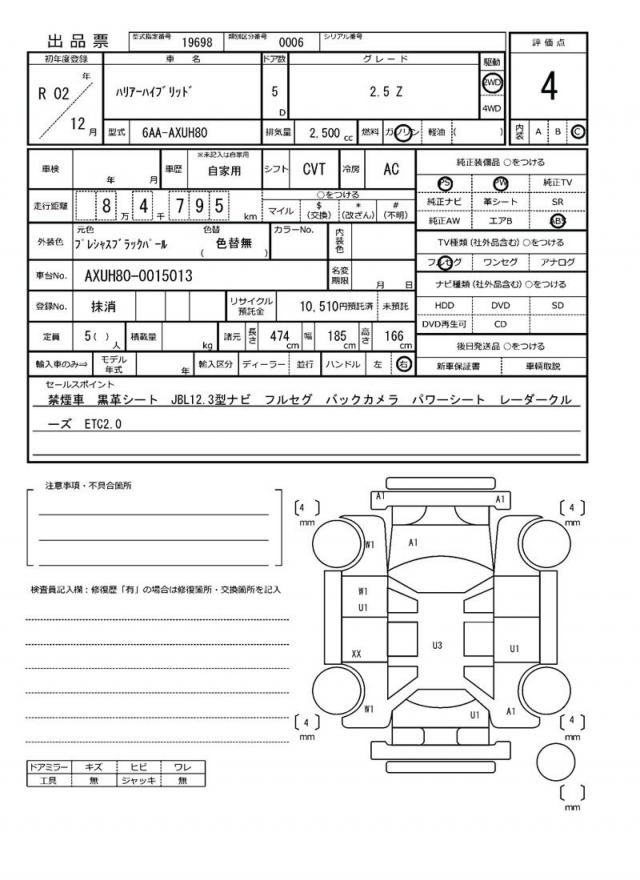 出品票 型式指定番号 19698 類別区分番号 0006 シリアル番号
初年度登録 車名 ドア数 グレード 駆動 評価点
R 02 年 12 月 ハリアーハイブリッド 5 D 2.5 Z 2WD 4WD 4
型式 6AA-AXUH80 排気量 2,500 cc 燃料 ガソリン 軽油 ( ) 内装 A B C
車検 年 月 車歴 ※未記入は自家用 自家用 シフト CVT 冷房 AC
走行距離 8 万 4 千 7 9 5 km ○をつける マイル $ (交換) * (改ざん) # (不明)
外装色 元色 プレシャスブラックパール 色替 ( 色替無 ) カラーNo. 内装色
車台No. AXUH80-0015013 名変期限 月 日
登録No. 抹消 リサイクル預託金 10,510円預託済 未預託
定員 5( ) 人 積載量 kg 諸元 長さ 474 cm 幅 185 cm 高さ 166 cm
輸入車のみ⇒ モデル年式 年 輸入区分 ディーラー 並行 ハンドル 左 右
純正装備品 ○をつける
PS PW 純正TV
純正ナビ 革シート SR
純正AW エアB ABS
TV種類 (社外品含む) ○をつける
フルセグ ワンセグ アナログ
ナビ種類 (社外品含む) ○をつける
HDD DVD SD
DVD再生可 CD
後日発送品 ○をつける
新車保証書 車輌取説
セールスポイント
禁煙車 黒革シート JBL12.3型ナビ フルセグ バックカメラ パワーシート レーダークル
ーズ ETC2.0
注意事項・不具合箇所
検査員記入欄：修復歴「有」の場合は修復箇所・交換箇所を記入
ドアミラー キズ ヒビ ワレ
工具 無 ジャッキ 無
A1 A1
[ 4 ] mm [ 4 ] mm
W1 A1
W1
U1
XX U3 U1
W1 U1 A1
[ 4 ] mm [ 4 ] mm
[ ] mm